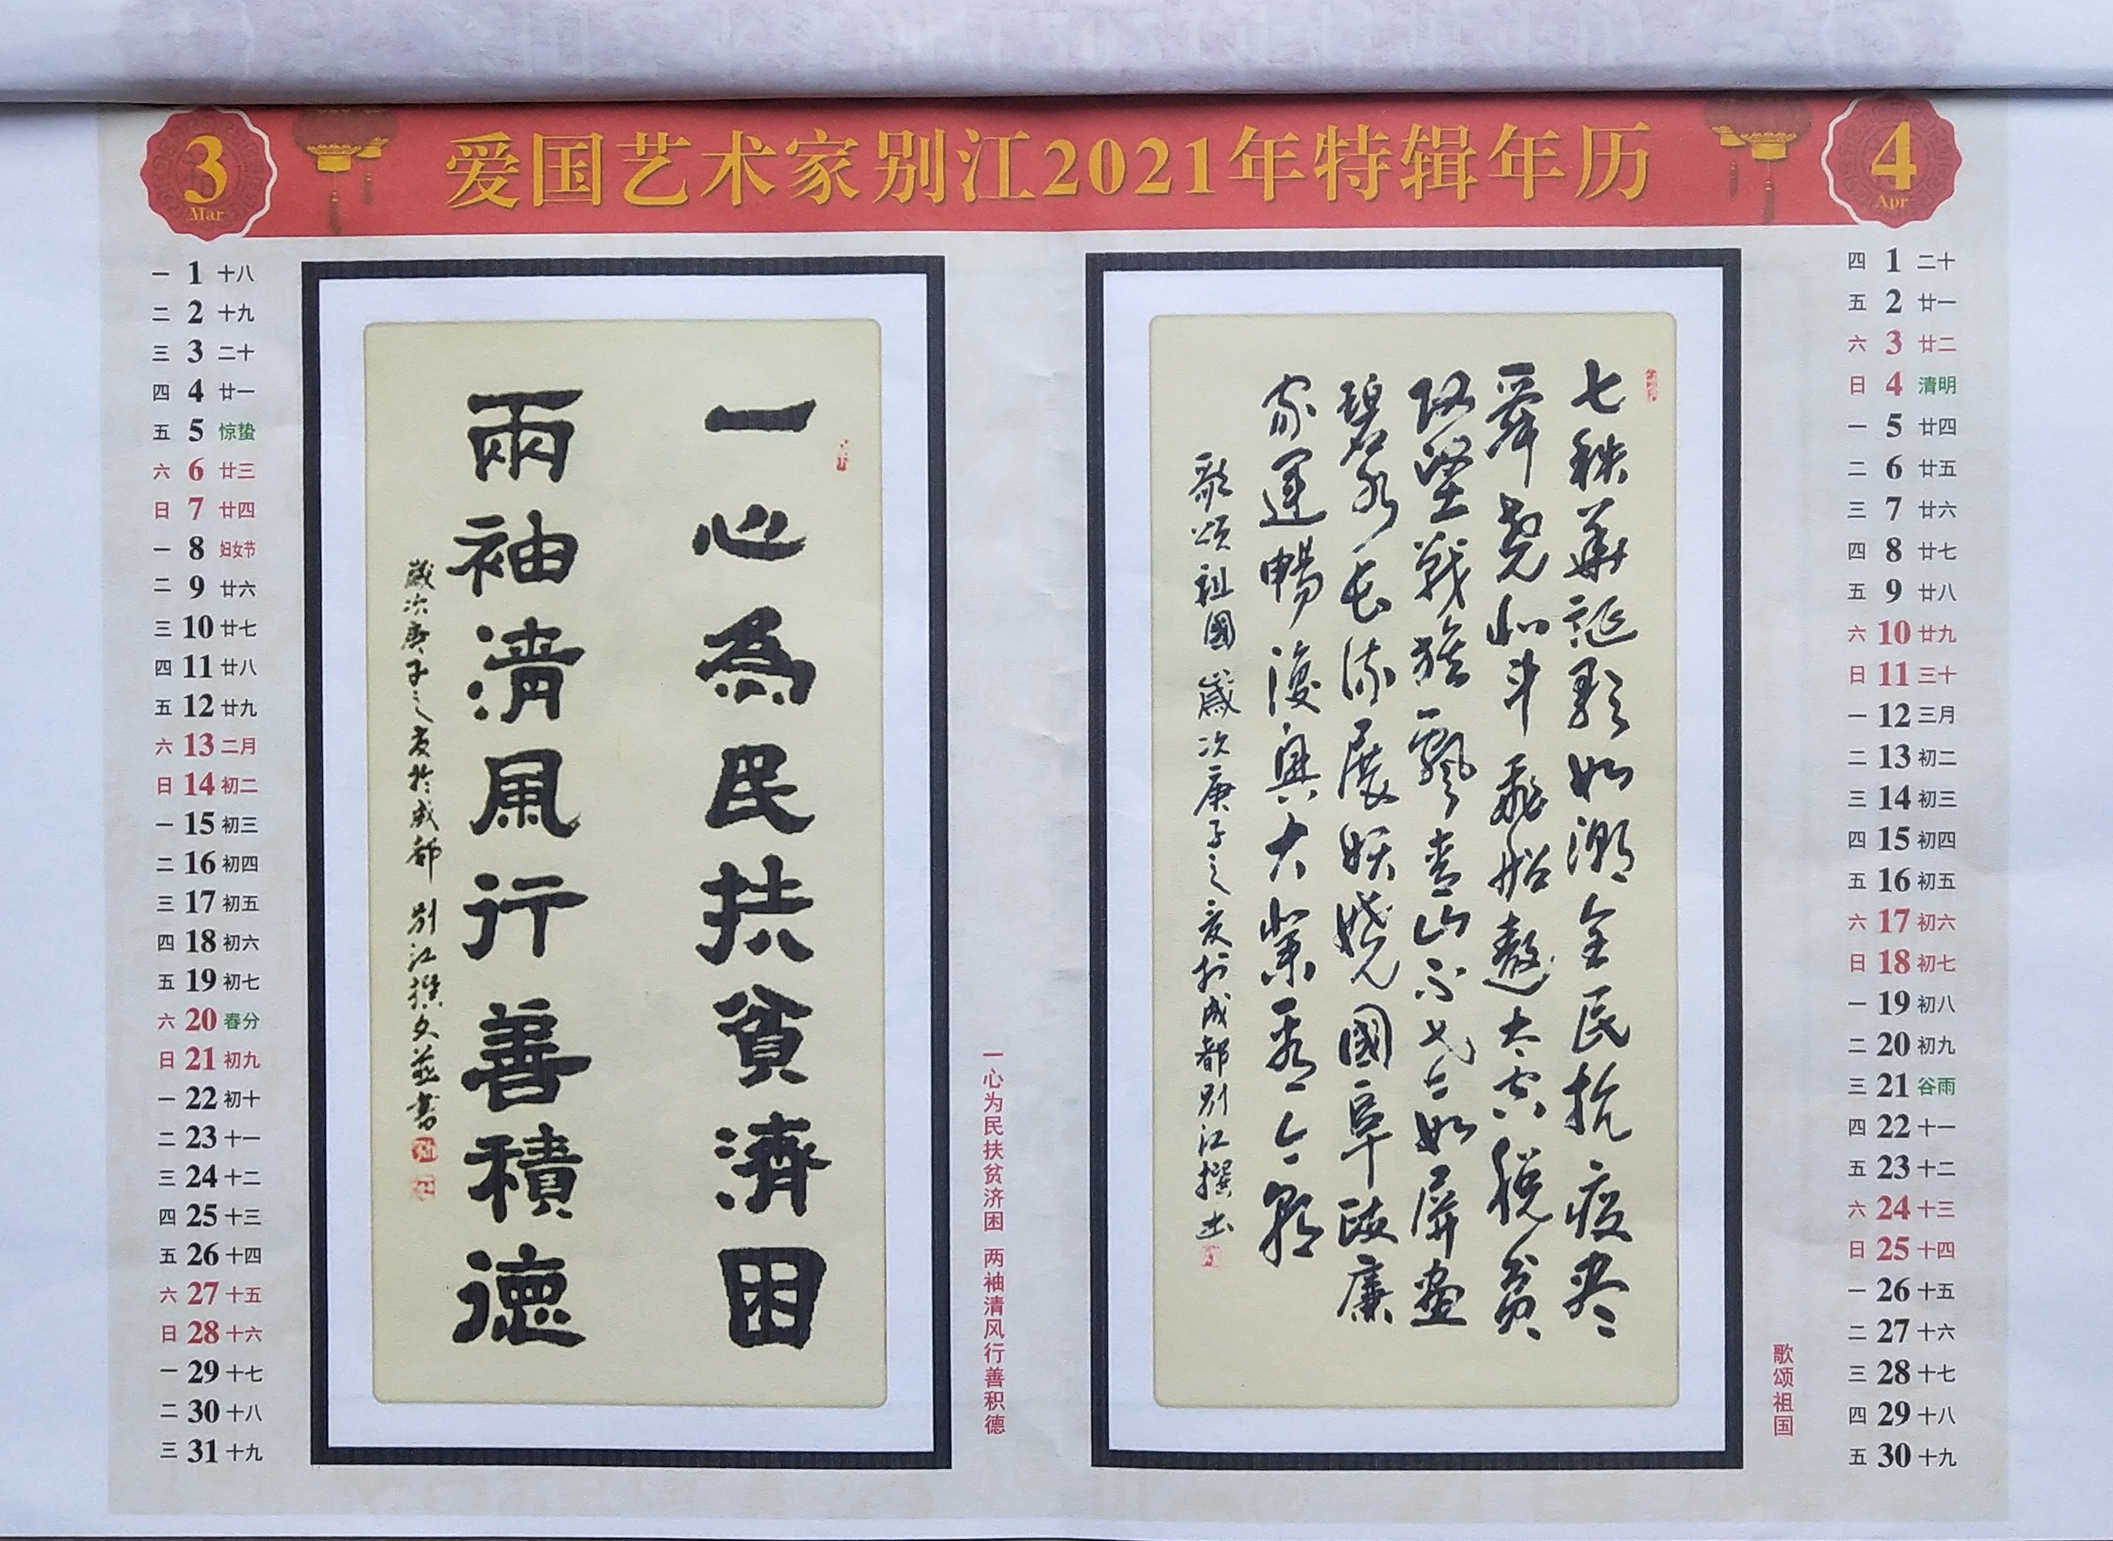 爱国艺术家别江2021年特辑年历
3
Mar
一 1 十八
二 2 十九
三 3 二十
四 4 廿一
五 5 惊蛰
六 6 廿三
日 7 廿四
一 8 妇女节
二 9 廿六
三 10 廿七
四 11 廿八
五 12 廿九
六 13 二月
日 14 初二
一 15 初三
二 16 初四
三 17 初五
四 18 初六
五 19 初七
六 20 春分
日 21 初九
一 22 初十
二 23 十一
三 24 十二
四 25 十三
五 26 十四
六 27 十五
日 28 十六
一 29 十七
二 30 十八
三 31 十九
一心為民扶貧濟困
兩袖清風行善積德
歲次庚子之夏於成都 别江撰文並書
一心为民扶贫济困 两袖清风行善积德
七秩華誕歌如潮全民抗疫尽
舜堯北斗飛船遨太空脱貧
攻堅戰旗飄青山不老如屏畫
碧水长流展妖娆國阜政廉
家運暢復興大業看今朝
歌頌祖國 歲次庚子之夏於成都别江撰书
歌颂祖国
4
Apr
四 1 二十
五 2 廿一
六 3 廿二
日 4 清明
一 5 廿四
二 6 廿五
三 7 廿六
四 8 廿七
五 9 廿八
六 10 廿九
日 11 三十
一 12 三月
二 13 初二
三 14 初三
四 15 初四
五 16 初五
六 17 初六
日 18 初七
一 19 初八
二 20 初九
三 21 谷雨
四 22 十一
五 23 十二
六 24 十三
日 25 十四
一 26 十五
二 27 十六
三 28 十七
四 29 十八
五 30 十九